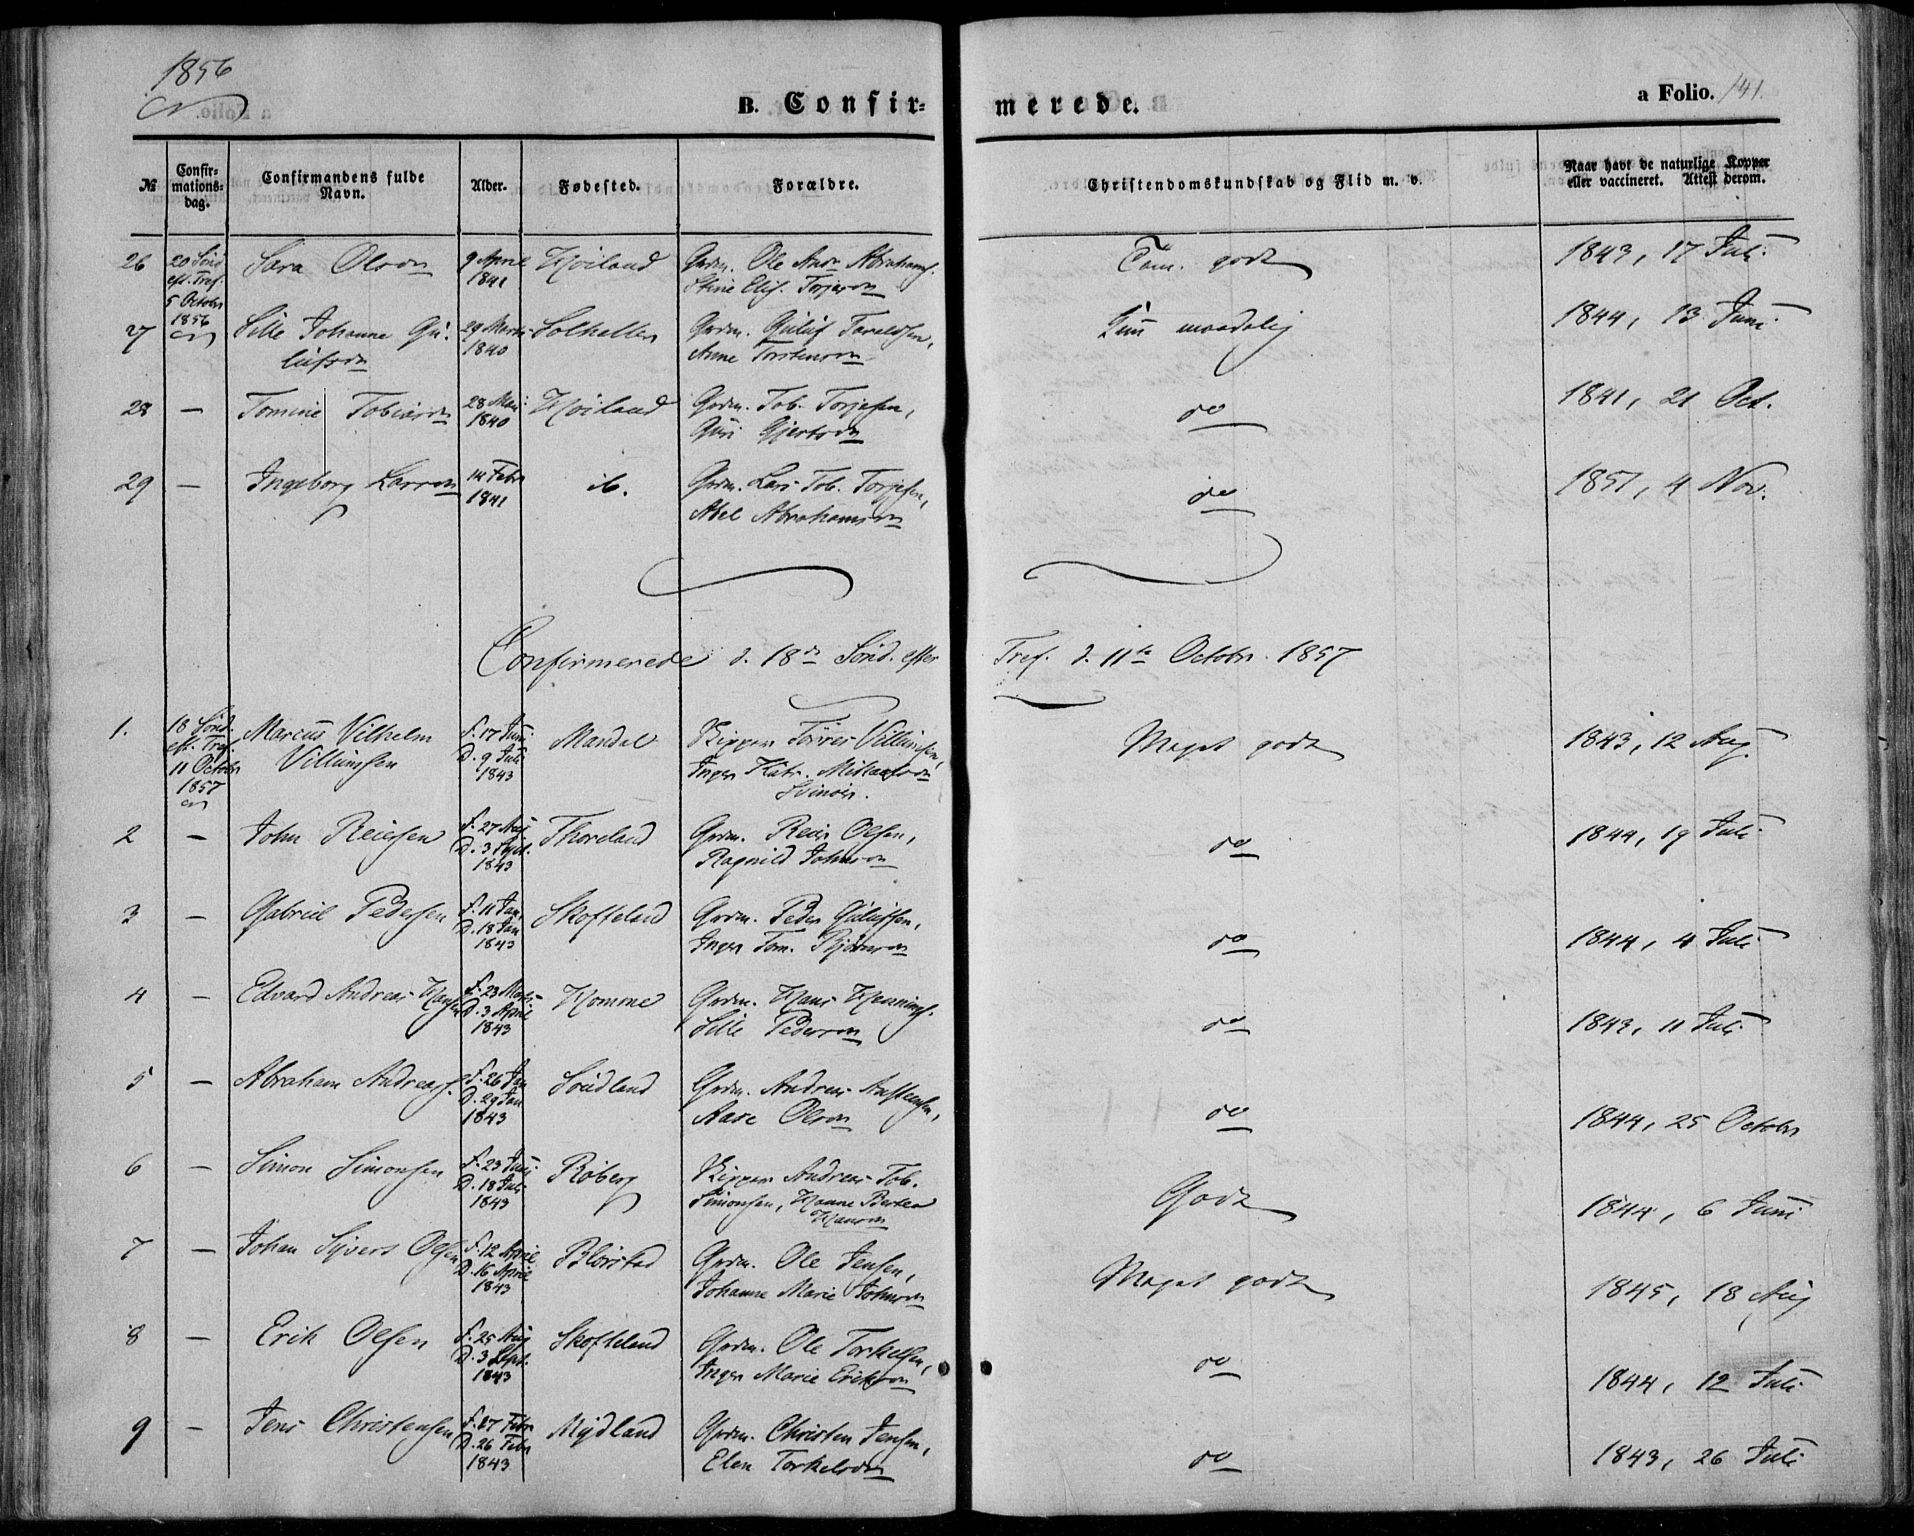 1856
B. Confir-
merede.
a Folio. 141.
№
Confir-
mations-
dag.
Confirmandens fulde
Navn.
Alder.
Fødested.
Forældre.
Christendomskundskab og Flid m. v.
Naar havt de naturlige Kopper
eller vaccineret. Attest derom.
26 20 Sønd
eft. Tref.
5 Octobr
1856
Sara Olsdn
9 April
1841
Høiland
Grdm. Ole And Abrahams.
Stine Elis. Torjesdn
Tem. godt
1843, 17 Juli
27
Sille Johanne Gu-
lufsdn
29 Marts
1840
Solhelle
Grdm. Guluf Taraldsen,
Anne Torstensdn
Kun maadelig
1844, 13 Juni
28 — Tomine Tobiasdn
28 Mai
1840
Høiland
Grdm. Tob. Torjesen,
Guri Gjertsdn
do
1841, 21 Oct.
29 — Ingeborg Larsdn
14 Febr
1841
ib.
Grdm. Lars Tob. Torjesen,
Abel Abrahamsdn
do
1851, 4 Nov.
Confirmerede d. 18de Sønd. efter
Tref. d. 11te Octobr. 1857
1. 18 Sønd.
eft. Tref.
11 Octobr
1857
Marcus Vilhelm
Villumsen
F. 17 Juni
D. 9 Juli
1843
Mandal
Skipper Tørres Villumsen,
Inger Katr. Mikkelsdn
Svinør.
Meget godt
1843, 12 Aug.
2 — John Reiersen
F. 27 Aug
D. 3 Sept.
1843
Thoreland
Grdm. Reier Olsen,
Ragnild Johnsdn
do
1844, 19 Juli
3 — Gabriel Pedersen
F. 11 Jan.
D. 18 Jan
1843
Skofteland
Grdm. Peder Gulufsen,
Inger Tom. Bjørnsdn
do
1844, 4 Juli
4 — Edvard Andreas Hansen
F. 23 Marts
D. 3 April
1843
Homme
Grdm. Hans Hennings.
Sille Pedersdn
do
1843, 11 Juli
5 — Abraham Andreas.
F. 26 Jan
D. 29 Jan
1843
Sødland
Grdm. Andreas Anstensen,
Aase Olsdn
do
1844, 25 Octobr
6 — Simon Simonsen
F. 23 Juni
D. 18 Juli
1843
Roberg
Skipper Andreas Tob.
Simonsen, Hanne Bertea
Hansdn
Godt
1844, 6 Juni
7 — Johan Sivert Olsen
F. 12 April
D. 16 April
1843
Blørstad
Grdm. Ole Jensen,
Johanne Marie Johnsdn
Meget godt
1845, 18 Aug
8 — Erik Olsen
F. 25 Aug
D. 3 Sept.
1843
Skofteland
Grdm. Ole Torkelsen,
Inger Marie Eriksdn
do
1844, 12 Juli
9 — Jens Christensen
F. 27 Febr
D. 26 Febr
1843
Mydland
Grdm. Christen Jensen,
Elen Torkelsdn
do
1843, 26 Juli